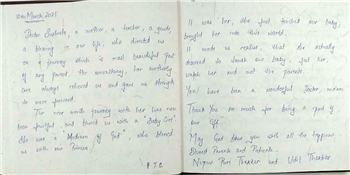 10th March 2021
Doctor Sushata, a mother, a teacher, a guide,
a blessing in our life, who directed us
on a journey which is most beautiful part
of any parent. The uncertainty, her certainty
care always relieved us and gave us strength
to move forward.
Our nine month journey with her has now
been fruitful, and blessed us with a "Baby Girl"
She was a "Medium of God", who blessed
us with our Princess
P.T.O.
It was her, who first touched our baby,
bought her into this world.
It made us realise, that she actually
deserved to touch our baby, first her,
watch her and not the parents.
You have been a wonderful Doctor ma'am
Thank you so much for being a part of
our life.
May God bless you with all the happiness
Blessed Parents and Patients.
Puri Thakker and Thakker